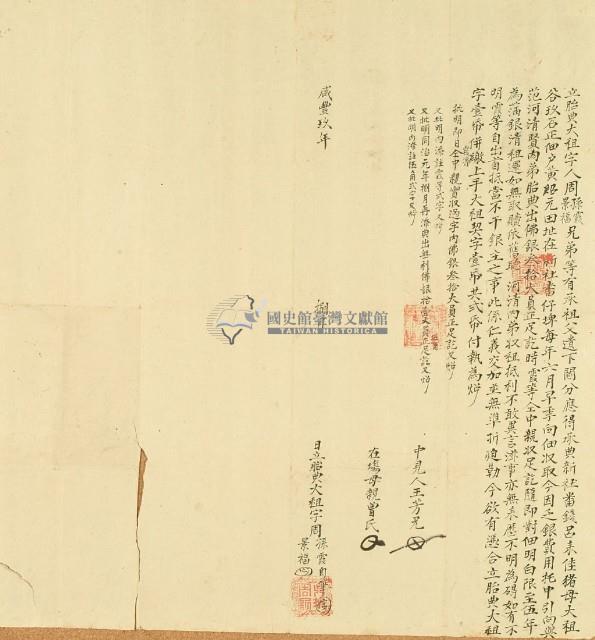 立胎典大租字人周孫霞景福兄弟等有承祖父遺下鬮分應得承典新社番錢呂未佳猪母大租
谷玖石正佃户黃 元田址在新社番仔埤每年六月早季向佃收取今因乏銀費用托中引向與
范河清賢內弟胎典出佛銀叁拾大員正足訖時霞等仝中親收足訖隨即對佃明白限至五年
為滿銀清租還如無取贖依舊 河清內弟收租抵利不敢異言滋事亦無來歷不明為碍如有不
明霞等自出首抵當不干銀主之事此係仁義交加並無準折迫勒今欲有憑合立胎典大租
字壹帋併繳上手大租契字壹帋共弍帋付執為炤
批明即日仝中親實收過字內佛銀叁拾大員正足訖又炤
又批明內添註霞等弍字又炤
又批明同治元年捌月再添典出無利佛銀拾 大員正足訖又炤
又批明內添註 角弍字又炤
中見人王芳兄
在塲母親曾氏
咸豐玖年 捌月 日立胎典大租字周孫霞自筆景福
國史館臺灣文獻館
TAIWAN HISTORICA